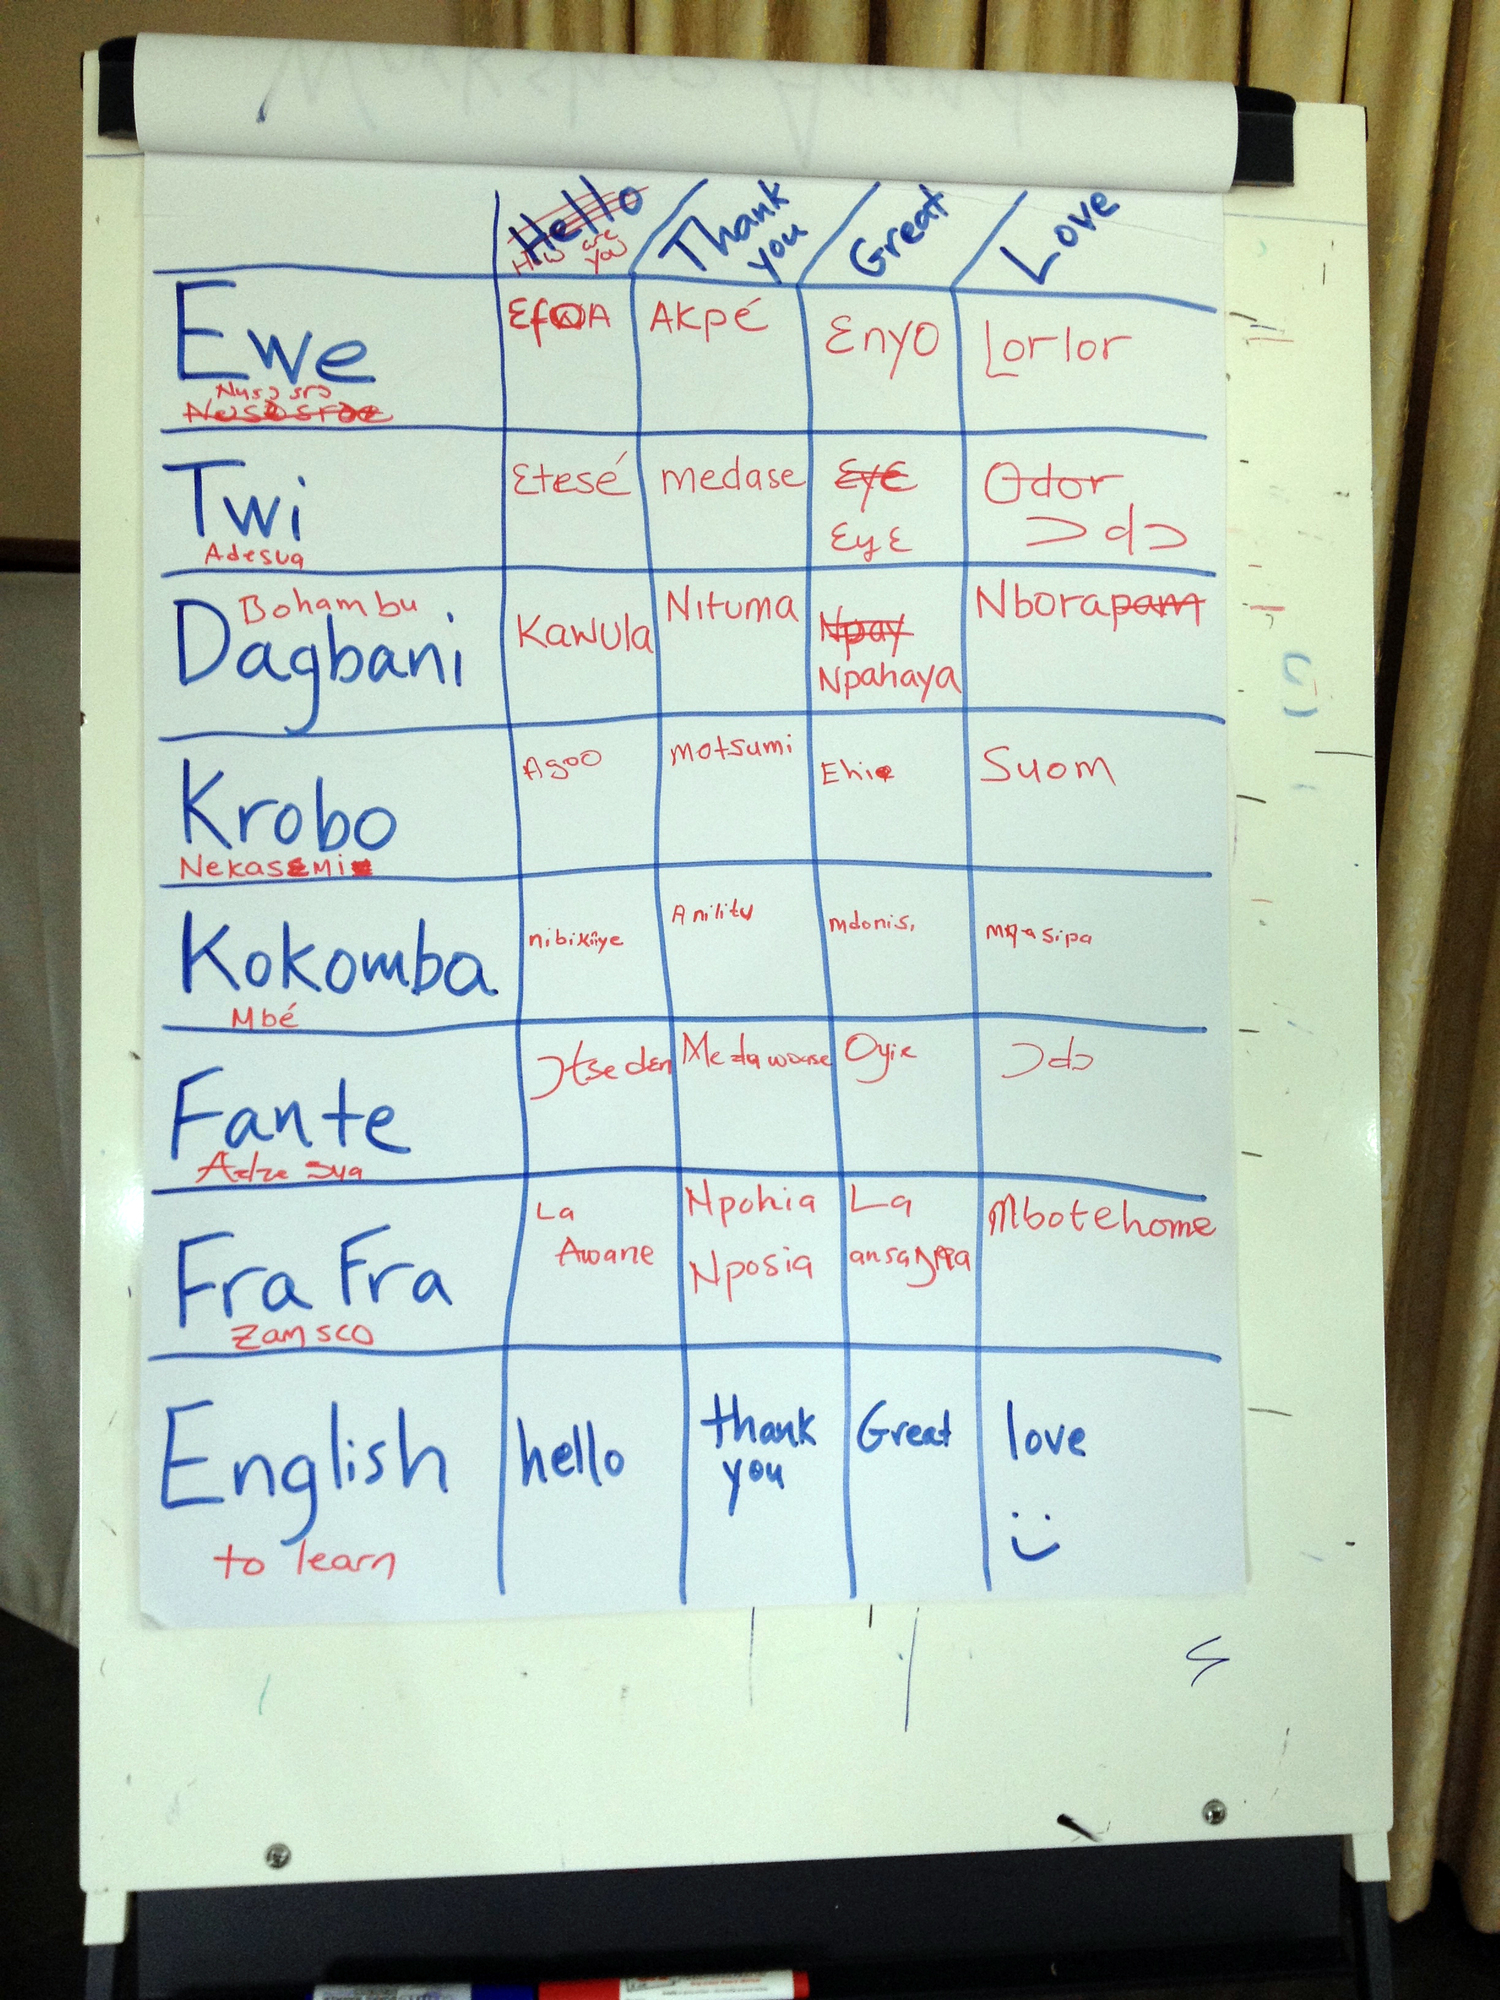 Hello Thank you Great Love
How are you
Ewe EfɔA Akpé Enyo Lorlor
Nusɔ srɔ
Twi Etesé medase EyE Odor
EyE ɔdɔ
Adesua
Bohambu
Dagbani Kawula Nituma Npay Nborapam
Npahaya
Krobo Agoo motsumi Ehie Suom
Nekasemi
Kokomba nibikiiye Anilitu mdonisi
Mbé
Fante ɔtse den Me da wo ase Oyie ɔdɔ
Adze Sua
Fra Fra La Awane Npohia Nposia La Mbotehome
Zamsco
English hello thank you Great love
to learn